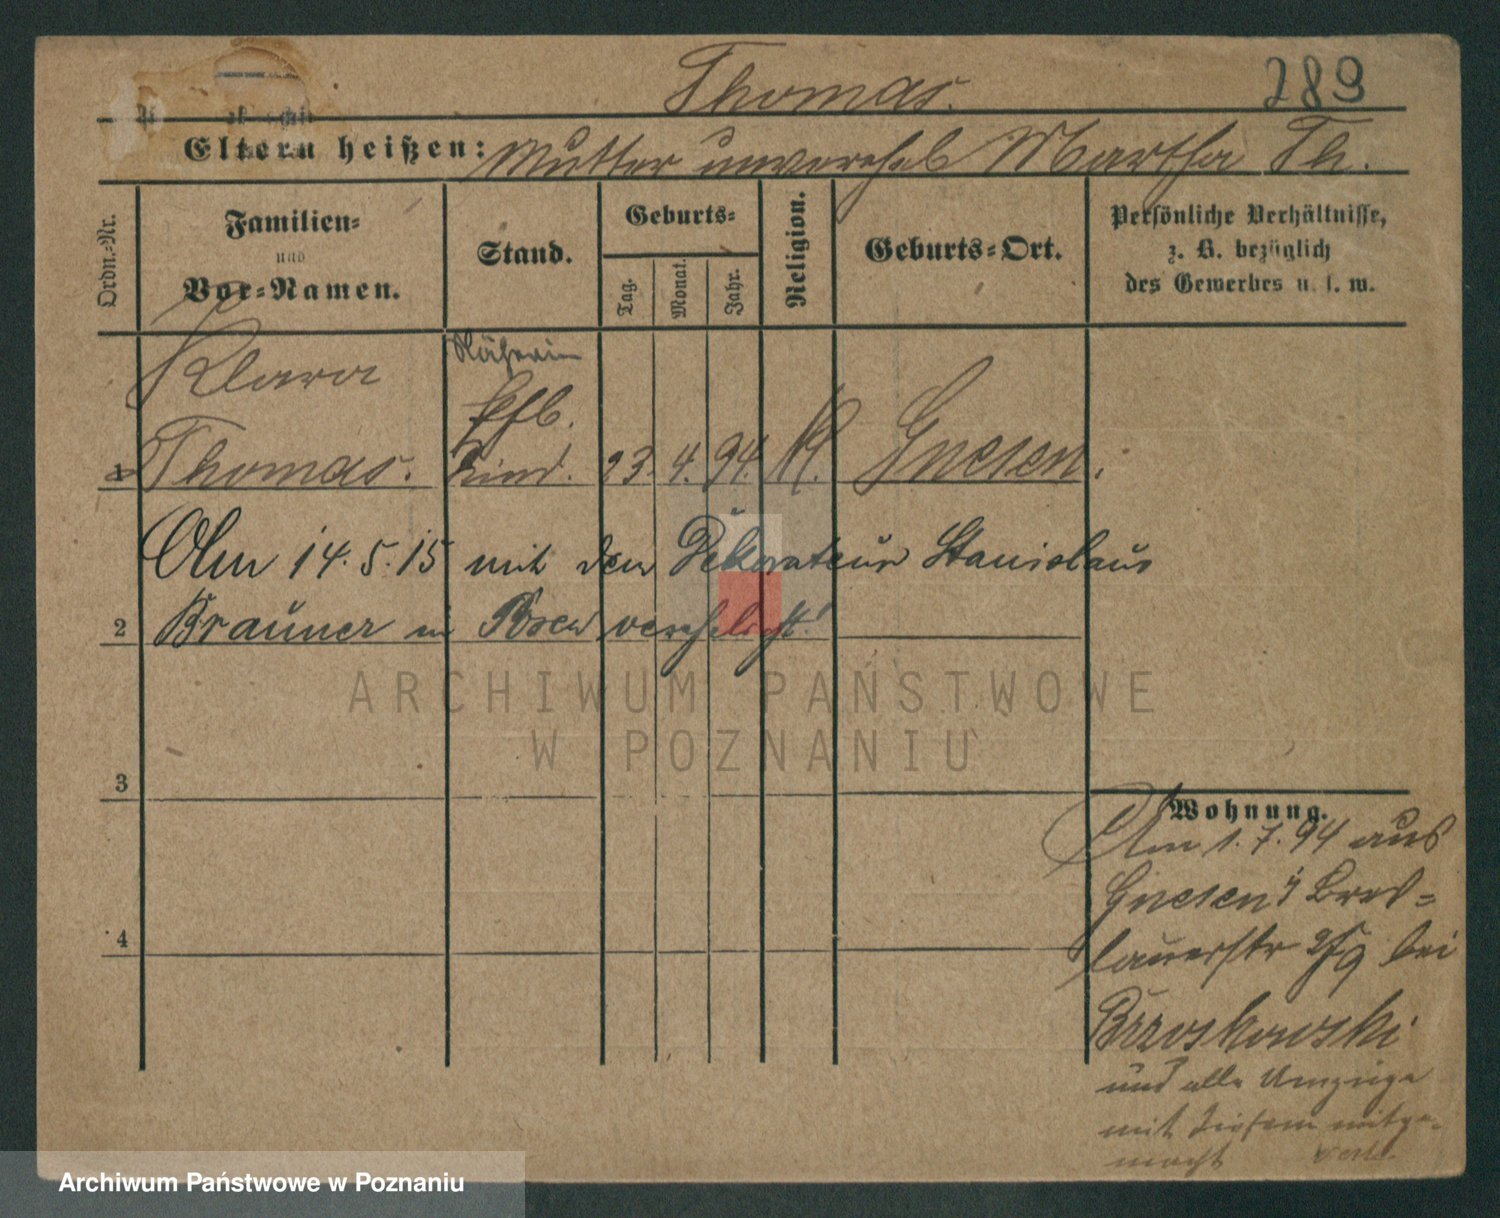 Thomas.
289
Eltern heißen: Mutter unverehel Martha Th.
Ordn.-Nr.
Familien-
und
Vor-Namen.
Stand.
Geburts-
Tag.
Monat.
Jahr.
Religion.
Geburts-Ort.
Persönliche Verhältnisse,
z. B. bezüglich
des Gewerbes u. s. w.
Klara
Näherin
1 Thomas. Kind. 23. 4. 94. K. Gnesen.
Am 14. 5. 15 mit dem Dekorateur Stanislaus
2 Brauner in Posen verehelicht!
ARCHIWUM PAŃSTWOWE
W POZNANIU
3
Wohnung.
Am 1. 7. 94 aus
Gnesen Bres-
4
lauerstr bei
Brzoskowski
und alle Umzüge
mit diesem mitge-
macht
Archiwum Państwowe w Poznaniu